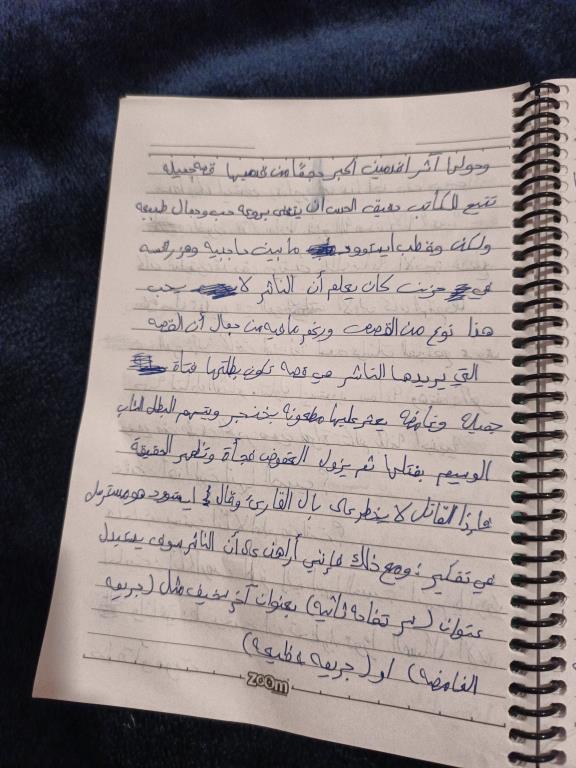 وحولها آثر قدمين أكبر حجمًا من قدميها قصه جميله
تتيح للكاتب دقيق الحس أن يتغنى بروعة حب وجمال طبيعه
ولكن وقطب ايستوود ما بين حاجبيه وهز رأسه
في حزن كان يعلم أن الناشر لا يحب
هذا نوع من القصص ورغم ما فيه من جمال أن القصه
التي يريدها الناشر هي قصه تكون بطلتها فتاة
جميلة وغامضه يعثر عليها مطعونه بخنجر ويتهم البطل الشاب
الوسيم بقتلها ثم يزول الغموض فجأة وتظهر الحقيقة
فإذا القاتل لا يخطر على بال القارئ وقال ايستوود هو مسترسل
في تفكير : ومع ذلك فإنني أراهن على أن الناشر سوف يستبدل
عنوان (سر تفاحة ثانيه) بعنوان آخر سخيف مثل (جريمه
الغامضه) او (جريمه فظيعه)
zoom